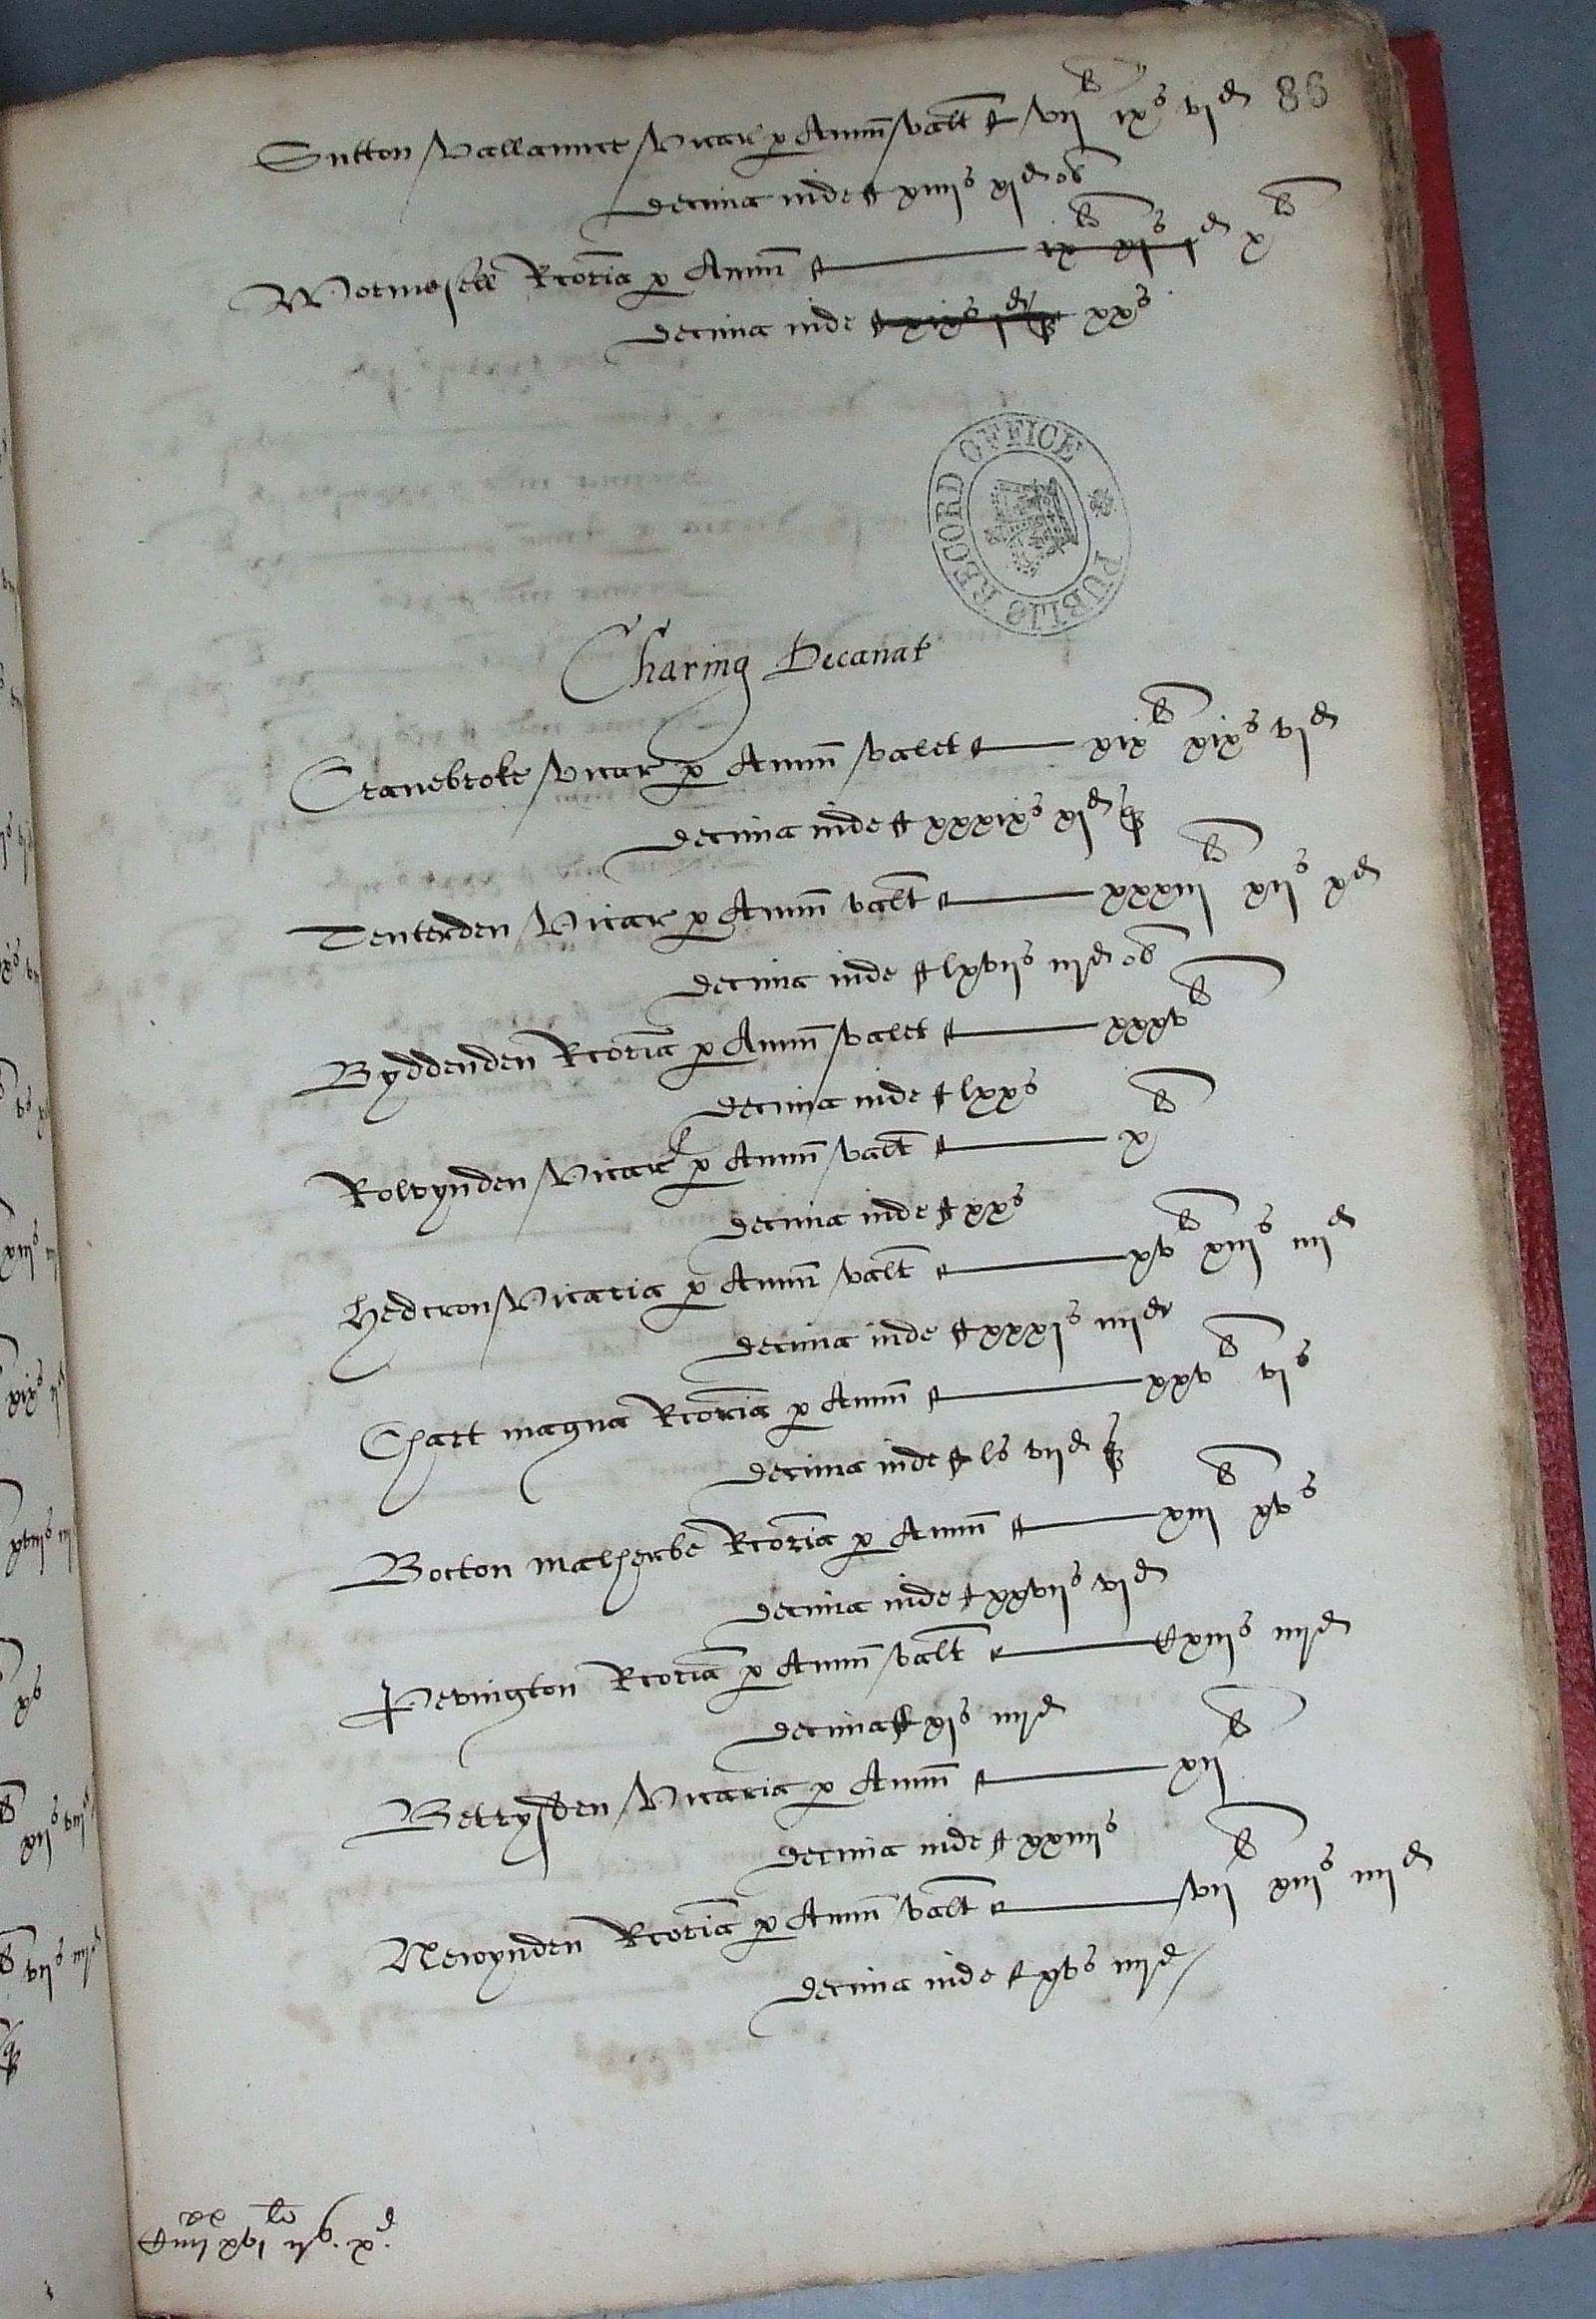 Sutton Vallannce Vicar p Annu Valt vii li ix s vi d 86
Decima inde xiiii s xi d ob
Wormesell Rcoria p Annu ix li xi s i d x li
Decima inde xix s i d q xx s
PUBLIC RECORD OFFICE
Charing Decanat
Cranebroke Vicar p Annu Valet xix li xix s vi d
Decima inde xxxix s xi d q
Tenterden Vicar p Annu valt xxxiii li xii s x d
Decima inde lxvii s iii d ob
Byddenden Rcoria p Annu Valet xxxv li
Decima inde lxx s
Rolvynden Vicar p Annu Valt x li
Decima inde xx s
Hedcron Vicaria p Annu Valt xv li xiii s iiii d
Decima inde xxxi s iiii d
Chart magna Rcoria p Annu xxv li vi s
Decima inde l s vii d q
Bocton Malherbe Rcoria p Annu xiii li xv s
Decima inde xxvii s vi d
Pevington Rcoria p Annu Valt Cxiii s iiii d
Decima xi s iiii d
Bettrysden Vicaria p Annu xii li
Decima inde xxiiii s
Newynden Rcoria p Annu Valt vii li xiii s iiii d
Decima inde xv s iiii d